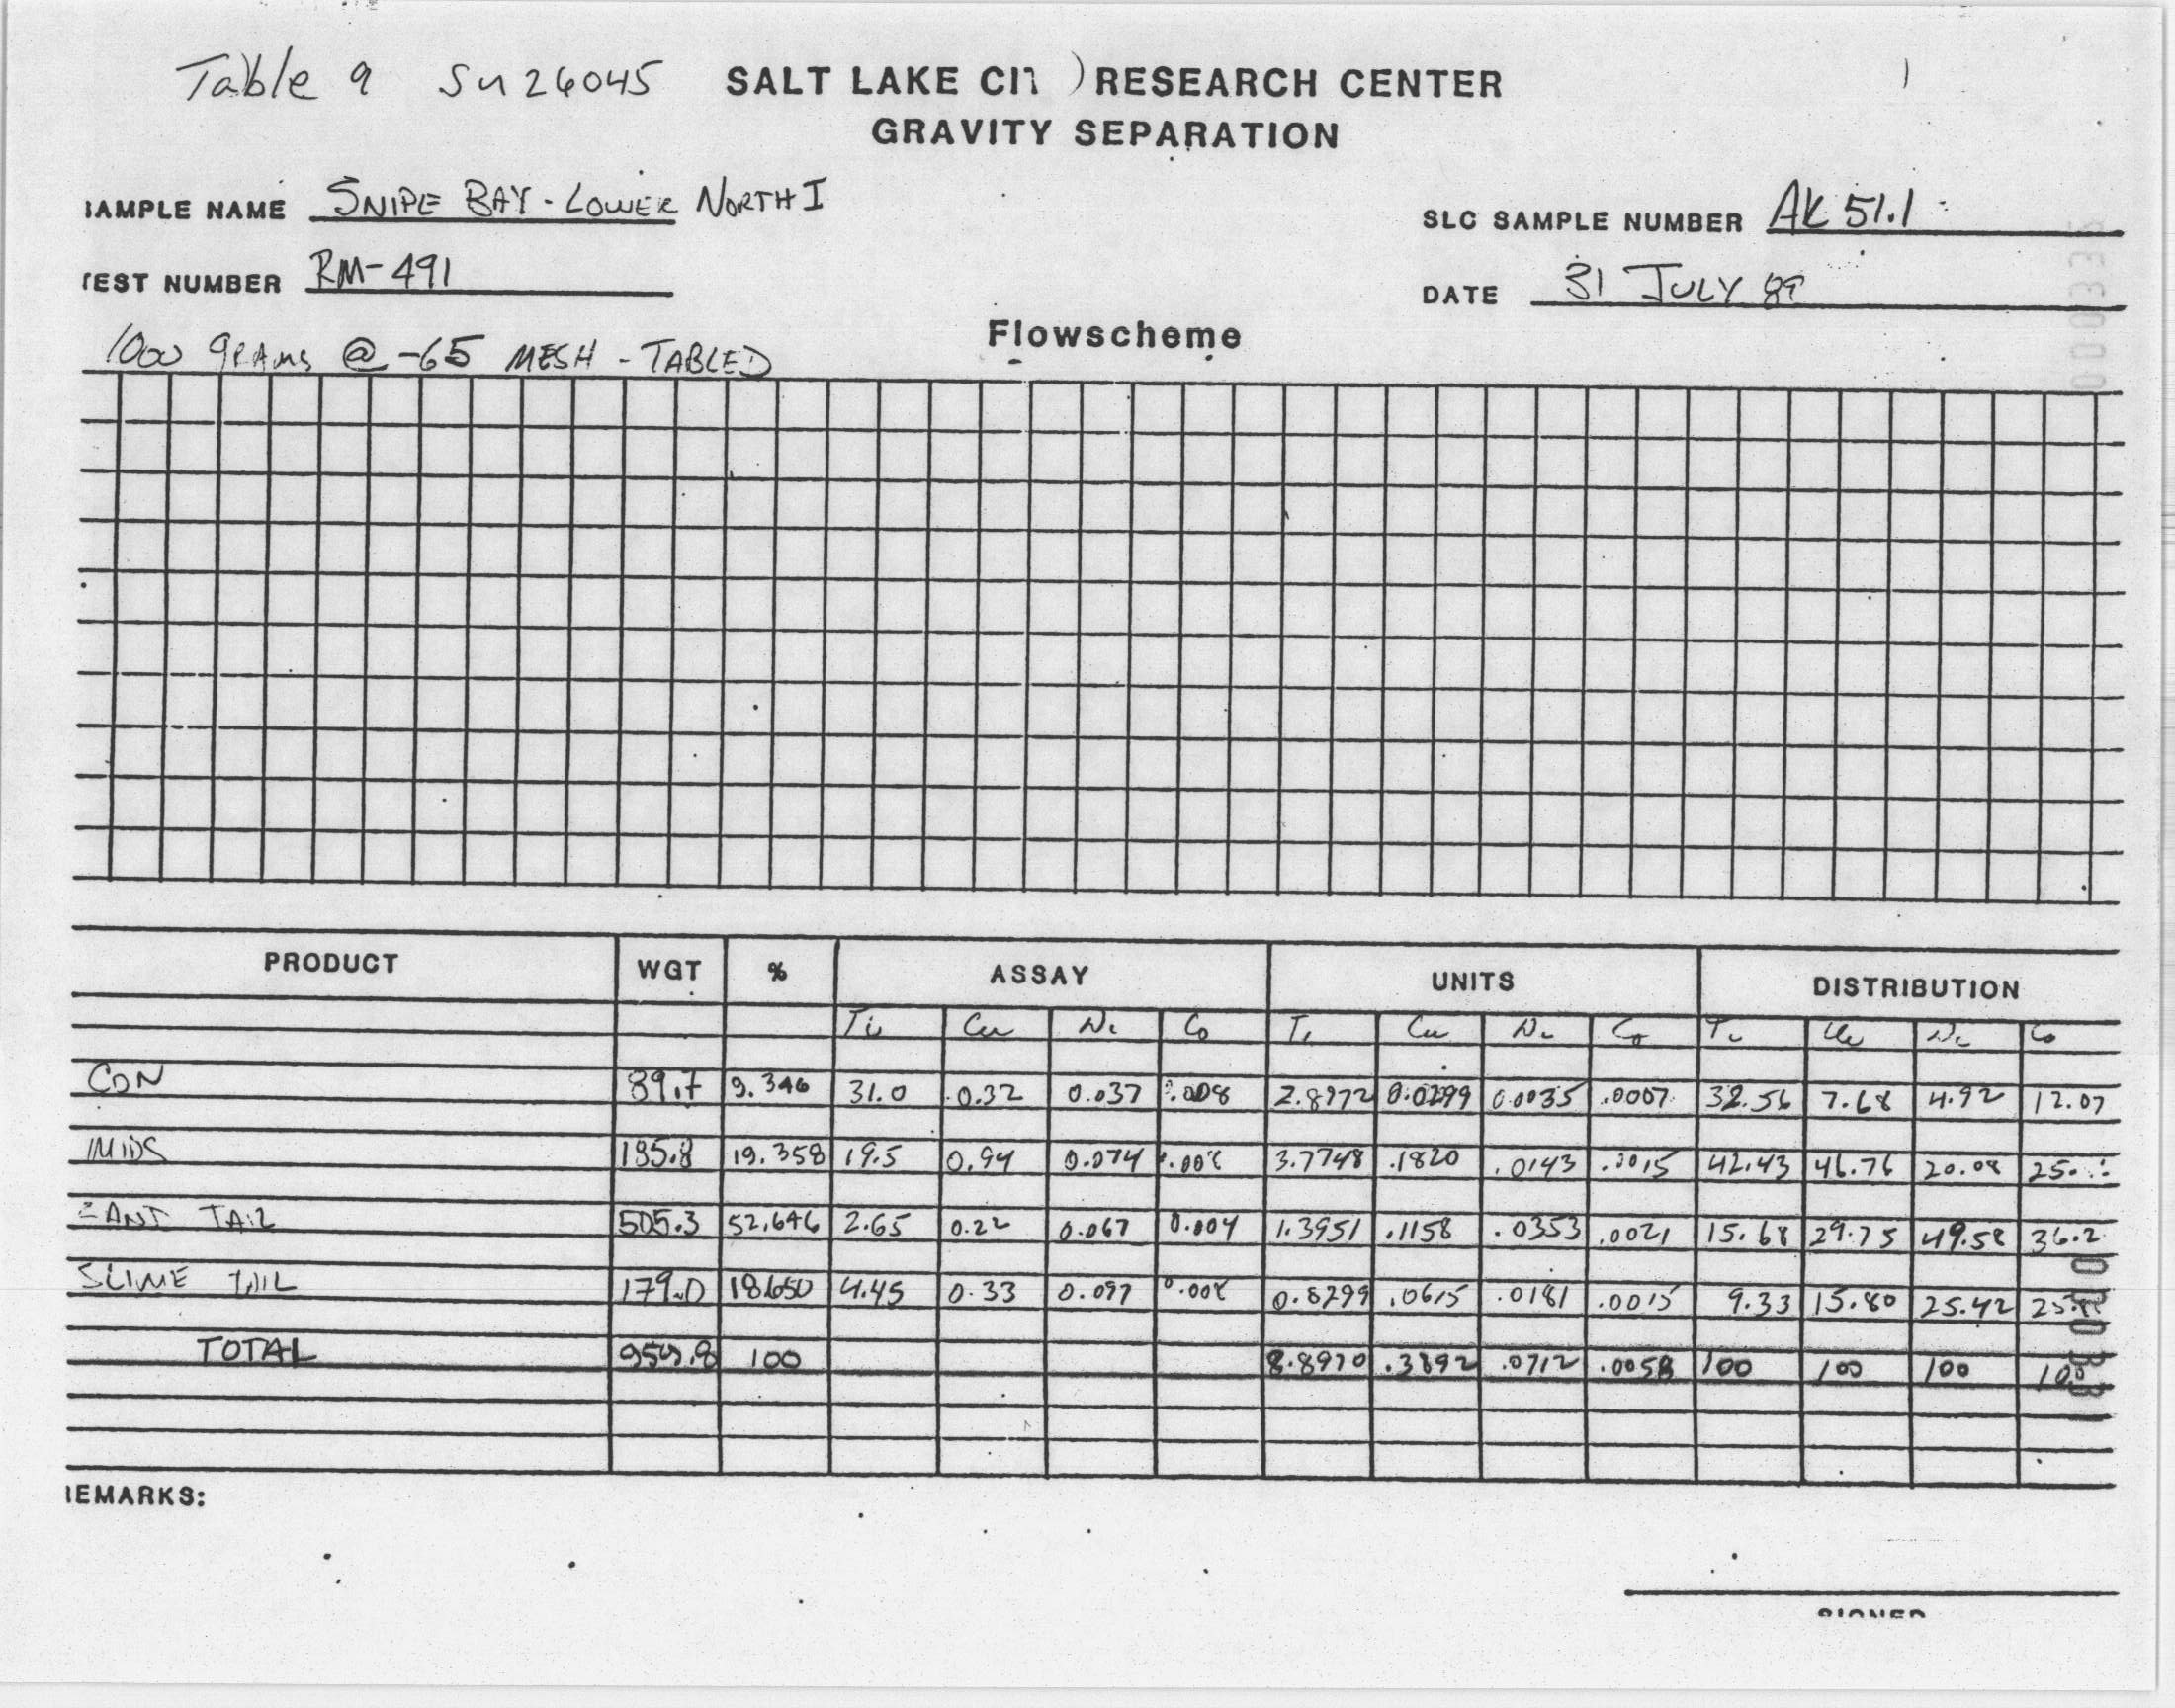 Table 9 SN26045 SALT LAKE CI ) RESEARCH CENTER
GRAVITY SEPARATION
AMPLE NAME SNIPE BAY - LOWER NORTH I
SLC SAMPLE NUMBER AK 51.1
EST NUMBER RM-491
DATE 31 JULY 89
1000 GRAMS @ -65 MESH - TABLED
Flowscheme
PRODUCT WGT % ASSAY UNITS DISTRIBUTION
Ti Cu Ni Co Ti Cu Ni Co Ti Cu Ni Co
CON 89.7 9.346 31.0 0.32 0.037 .008 2.8972 0.0299 0.0035 .0007 32.56 7.68 4.92 12.07
MIDS 185.8 19.358 19.5 0.94 0.074 .008 3.7748 .1820 .0143 .0015 42.43 46.76 20.08
SAND TAIL 505.3 52.646 2.65 0.22 0.067 0.004 1.3951 .1158 .0353 .0021 15.68 29.75 49.58 36.2
SLIME TAIL 179.0 18.650 4.45 0.33 0.097 0.008 0.8299 .0615 .0181 .0015 9.33 15.80 25.42
TOTAL 959.8 100 8.8970 .3892 .0712 .0058 100 100 100 100
EMARKS:
SIGNED